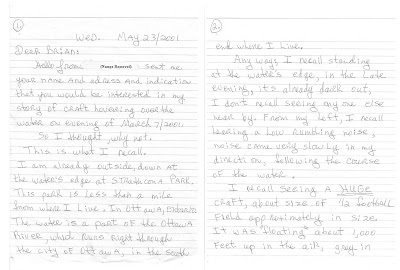 ①
WED. MAY 23/2001
DEAR BRIAN:
Hello from (Name Removed) I sent me
your name and adress and indication
that you would be interested in my
story of craft hovering over the
water on evening of March 7/2001.
So I thought, why not.
This is what I recall.
I am already outside, down at
the water's edge at STRATHCONA PARK.
This park is less than a mile
from where I live. In Ottawa, Ontario
The water is a part of the Ottawa
River, which runs right through
the city of Ottawa, in the south
②
end where I live.
Any ways I recall standing
at the water's edge, in the late
evening, it's already dark out,
I don't recall seeing any one else
near by. From my left, I recall
hearing a low rumbling noise,
noise came very slowly in my
direction, following the course
of the water.
I recall seeing A HUGE
craft, about size of 1/2 football
field approximately in size.
It was "floating" about 1,000
feet up in the air, grey in